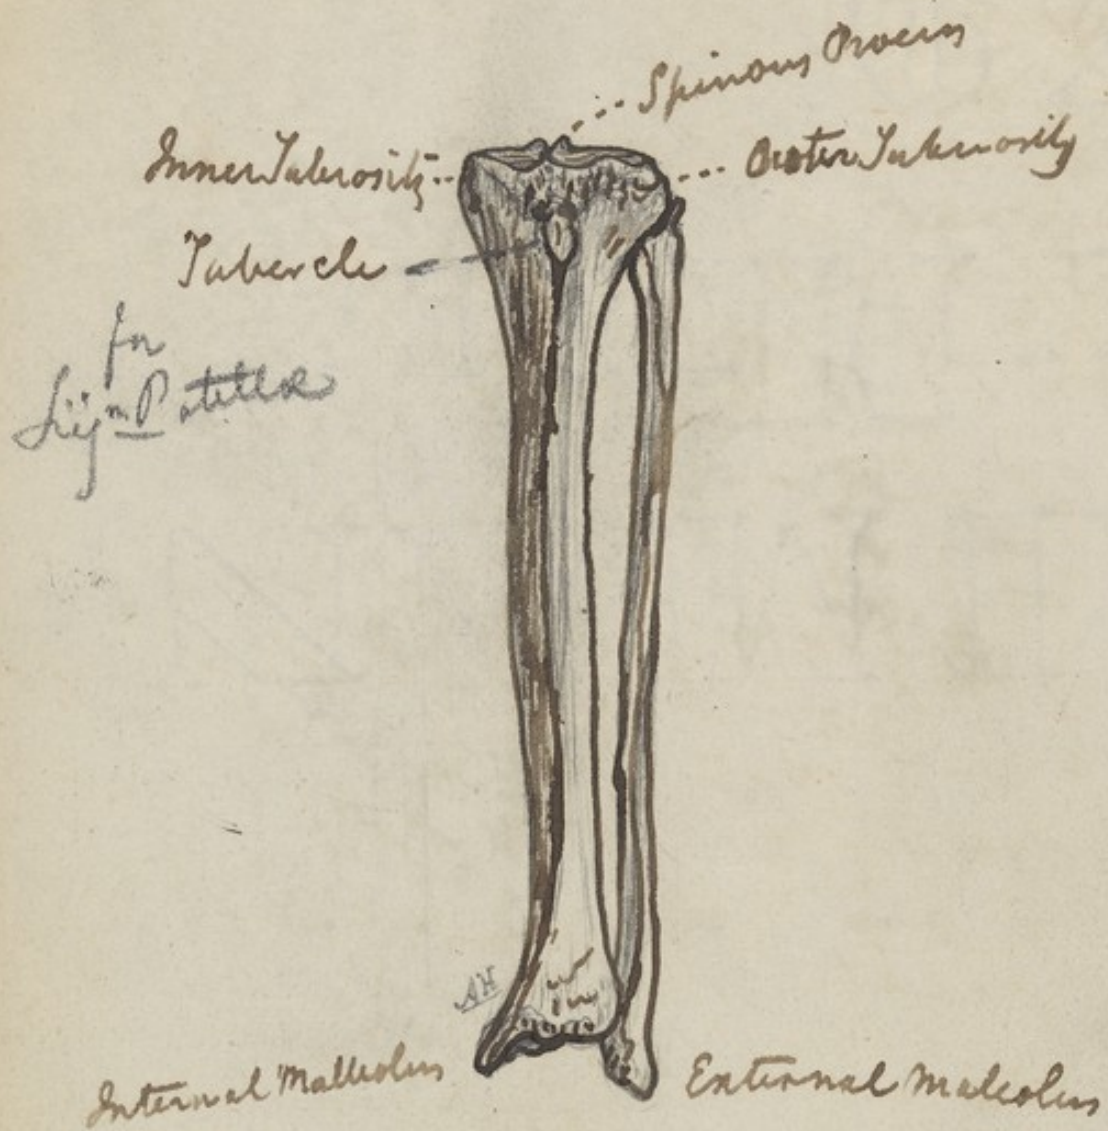 Spinous Process
Inner Tuberosity
Outer Tuberosity
Tubercle
for
Ligm Patellæ
AH
Internal Malleolus
External Maleolus